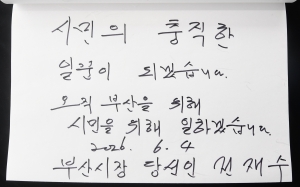 시민의 충직한
일꾼이 되겠습니다.
오직 부산을 위해
시민을 위해 일하겠습니다.
2026. 6. 4
부산시장 당선인 전재수